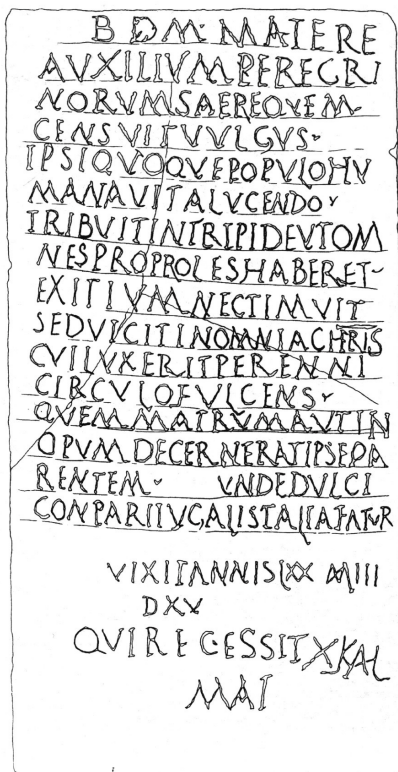 B D M· MATERE
AVXILIVMPEREGRI
NORVMSAEREQVEM
CENSVITVVLGVS
IPSIQVOQVEPOPVLOHV
MANAVITALVCENDO
TRIBVITINTRIPIDEVTOM
NESPROPROLESHABERET
EXITIVMNECTIMVIT
SEDVICITINOMNIACHRIS
CVILVXERITPERENNI
CIRCVLOFVLCENS
QVEMMATRVMAVTIN
OPVMDECERNERATIPSEPA
RENTEM VNDEDVLCI
CONPARIIVGALISTALIAFATVR
VIXITANNISLXX MIII
DXV
QVIRECESSIT XKAL
MAI